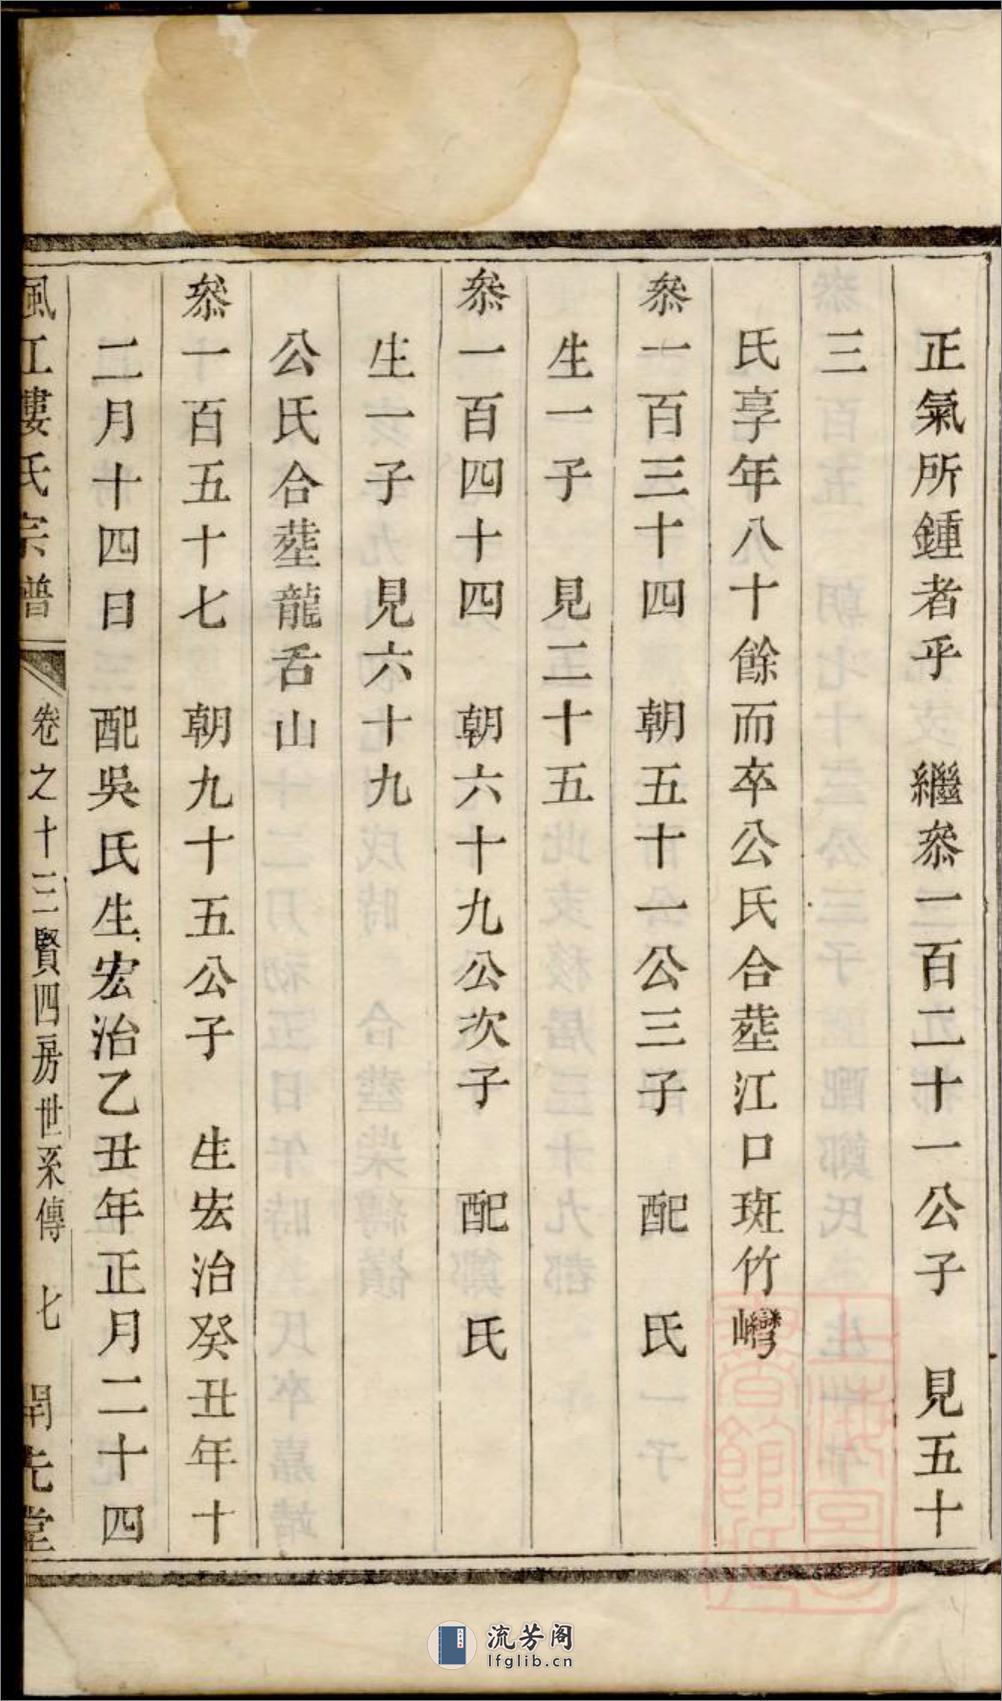 正氣所鍾者乎　繼叅一百二十一公子　見五十
三
氏享年八十餘而卒公氏合塟江口斑竹
叅一百三十四　朝五十一公三子　配　氏
生一子　見二十五
叅一百四十四　朝六十九公次子　配　氏
生一子　見六十九
公氏合塟龍舌山
叅一百五十七　朝九十五公子　生宏治癸丑年十
二月十四日　配吳氏生宏治乙丑年正月二十四
江婁氏宗譜　卷之十三賢四房世系傳　七　開先堂
流芳阁
lfglib.cn